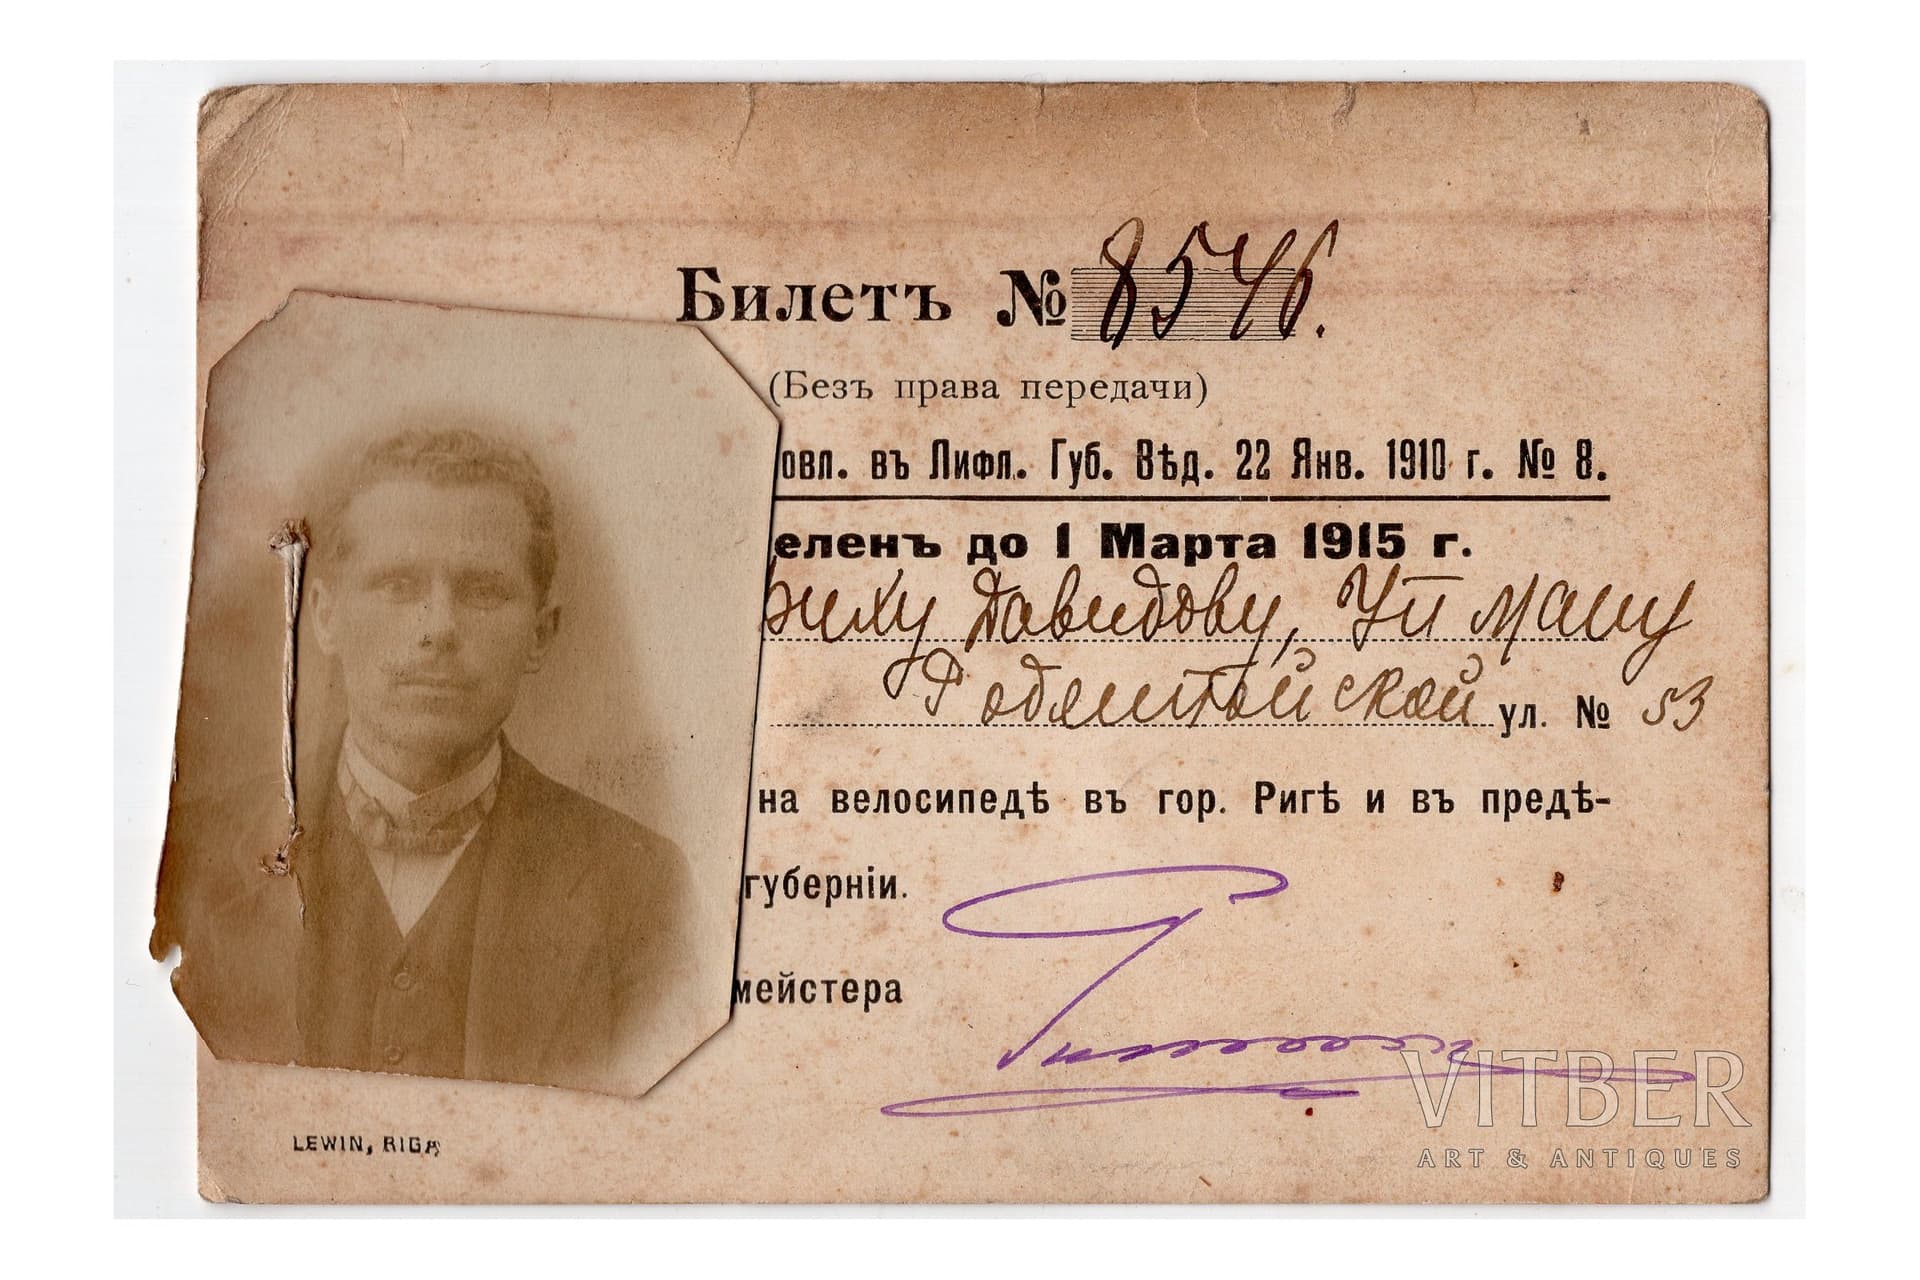 Билетъ № 8546.
(Безъ права передачи)
овл. въ Лифл. Губ. Вѣд. 22 Янв. 1910 г. № 8.
еленъ до 1 Марта 1915 г.
риху Давидову, Упману
ул. № 53
на велосипедѣ въ гор. Ригѣ и въ предѣ-
губерніи.
мейстера
LEWIN, RIGA
VITBER
ART & ANTIQUES